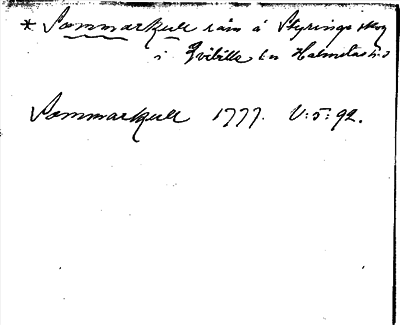 * Sommarkull rån å Styrings skog
i Qvibille sn Halmstads hd
Sommarkull 1777. V:5:92.